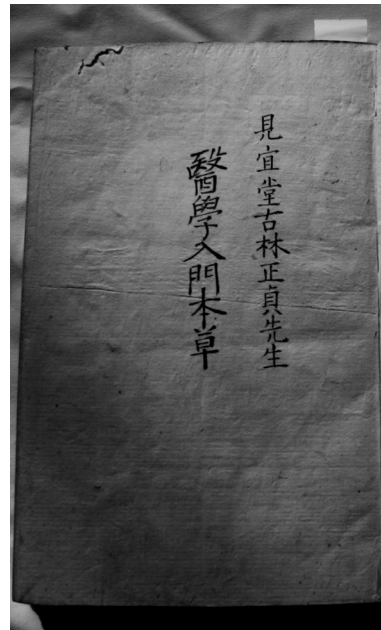 見宜堂古林正貞先生
醫學入門本草